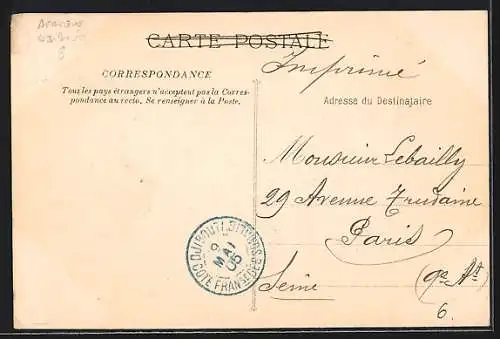 CARTE POSTALE
Imprimé
CORRESPONDANCE
Tous les pays étrangers n'acceptent pas la Corres-
pondance au recto. Se renseigner à la Poste.
Adresse du Destinataire
Monsieur Lebailly
29 Avenue Trudaine
Paris
Seine (9e Art)
6.
DJIBOUTI
9
MAI
05
CÔTE FRANSE DES SOMALIS
8